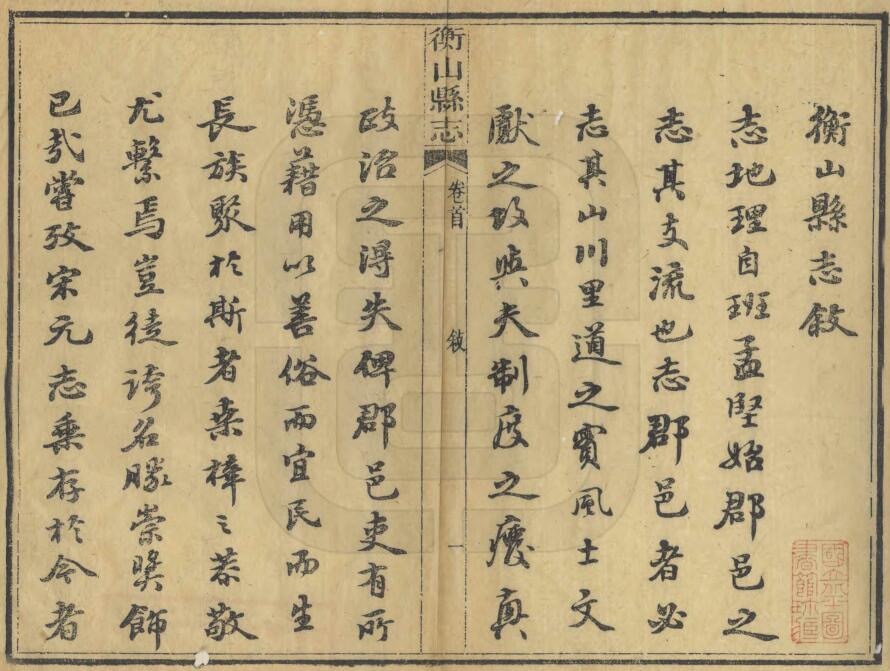 衡山縣志敘
志地理自班孟堅始郡邑之
志其支流也志郡邑者必
志其山川里道之實風土文
獻之攷與夫制度之廢興
政治之得失俾郡邑吏有所
憑藉用以善俗而宜民而生
長族聚於斯者桑梓之恭敬
尤繫焉豈徒誇名勝崇奬飾
已哉嘗攷宋元志乘存於今者
衡山縣志
卷首
敘
一